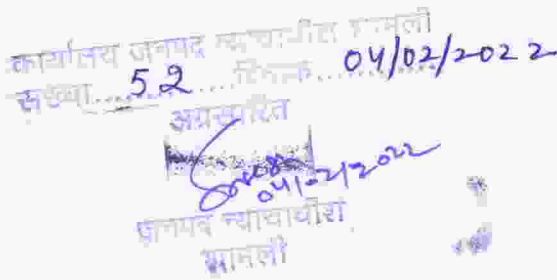 कार्यालय जनपद न्यायाधीश शामली
संख्या.....52......दिनांक....04/02/2022
अग्रसारित
04/02/2022
जनपद न्यायाधीश
शामली